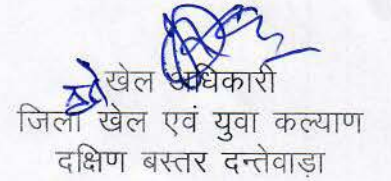 खेल अधिकारी
जिला खेल एवं युवा कल्याण
दक्षिण बस्तर दन्तेवाड़ा